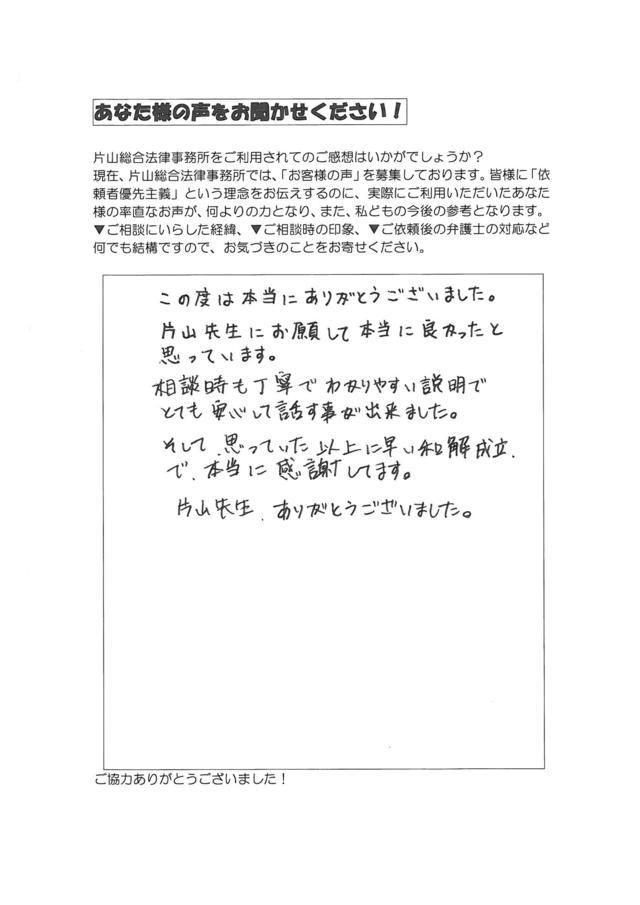 あなた様の声をお聞かせください！
片山総合法律事務所をご利用されてのご感想はいかがでしょうか？
現在、片山総合法律事務所では、「お客様の声」を募集しております。皆様に「依
頼者優先主義」という理念をお伝えするのに、実際にご利用いただいたあなた
様の率直なお声が、何よりの力となり、また、私どもの今後の参考となります。
▼ご相談にいらした経緯、▼ご相談時の印象、▼ご依頼後の弁護士の対応など
何でも結構ですので、お気づきのことをお寄せください。
この度は本当にありがとうございました。
片山先生にお願して本当に良かったと
思っています。
相談時も丁寧でわかりやすい説明で
とても安心して話す事が出来ました。
そして、思っていた以上に早い和解成立、
で、本当に感謝してます。
片山先生、ありがとうございました。
ご協力ありがとうございました！